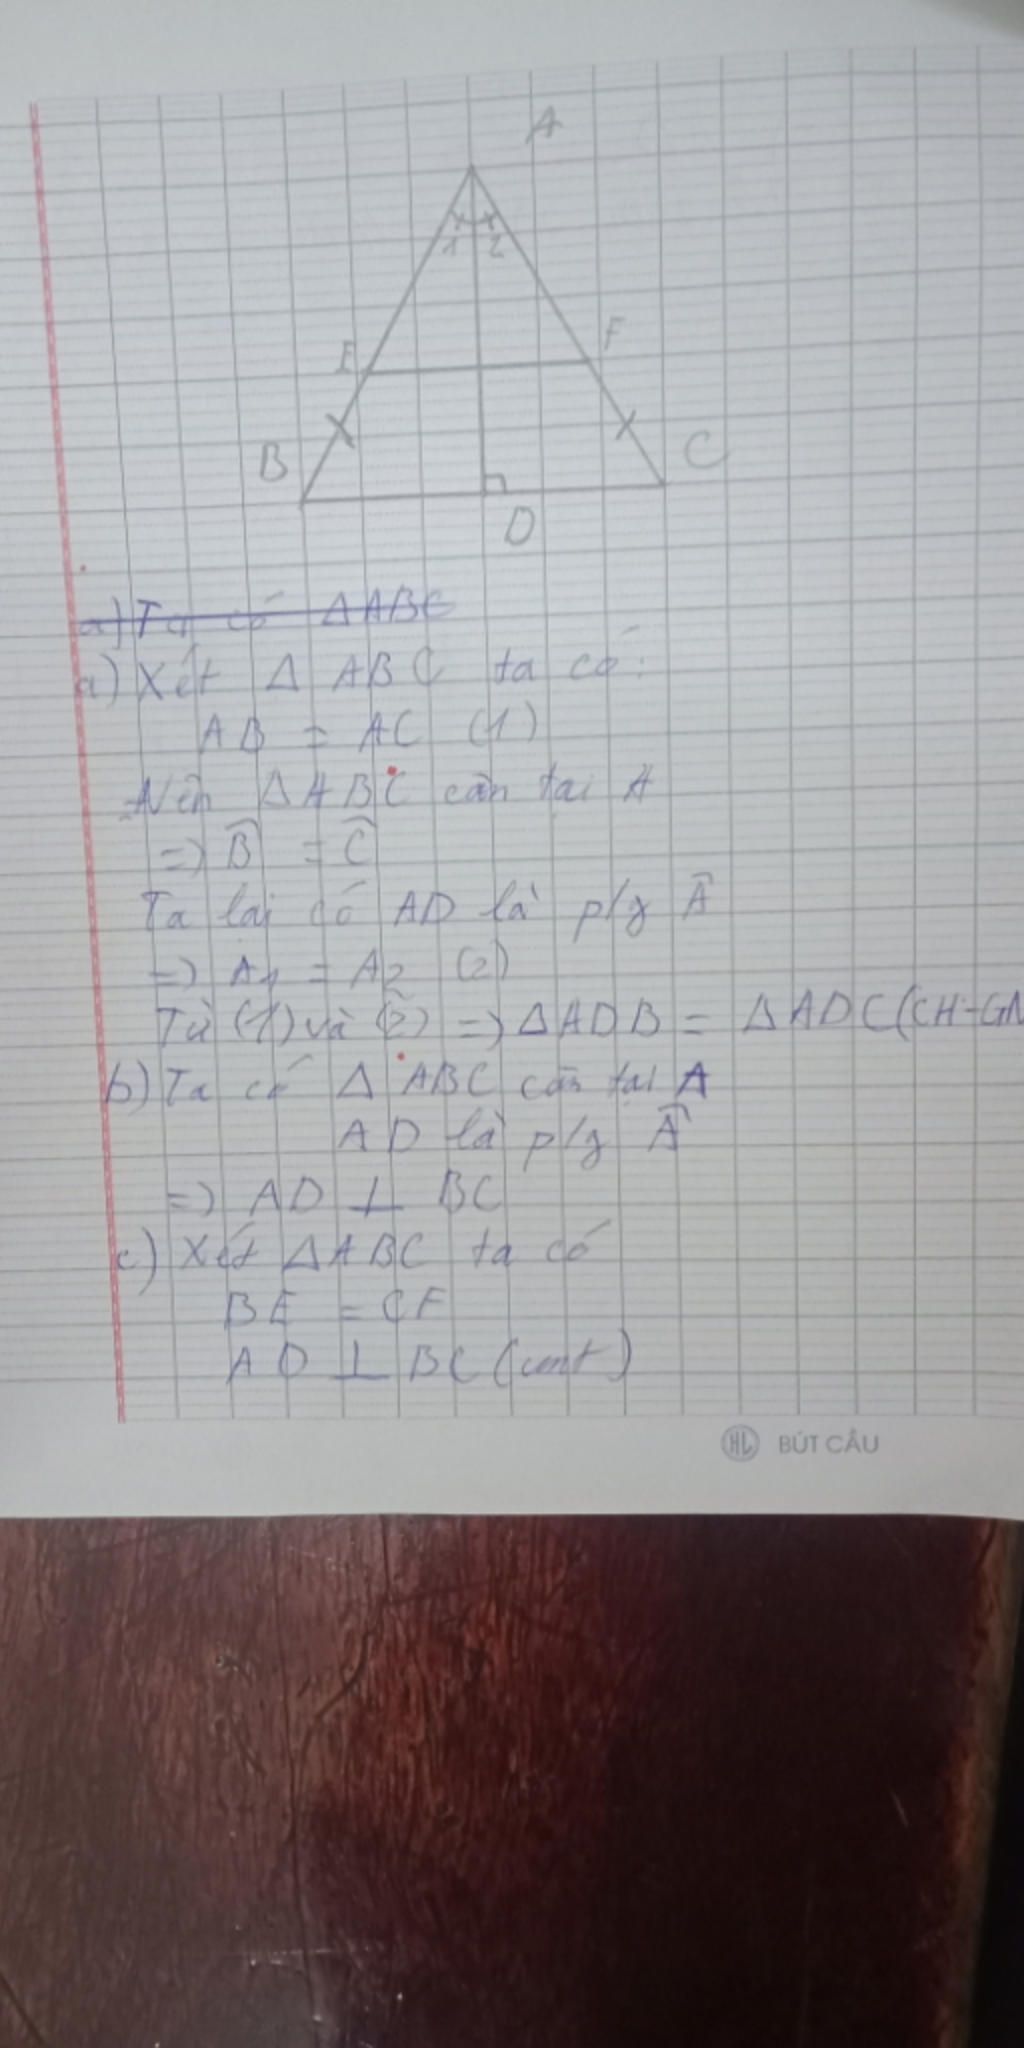 A
1 2
E F
B C
D
a) Ta có ΔABC
a) Xét Δ ABC ta có:
AB = AC (1)
Nên ΔABC cân tại A
=> B̂ = Ĉ
Ta lại có AD là p/g Â
=> A1 = A2 (2)
Từ (1) và (2) => ΔADB = ΔADC (CH-GN
b) Ta có Δ ABC cân tại A
AD là p/g Â
=> AD ⊥ BC
c) Xét ΔABC ta có
BE = CF
AD ⊥ BC (cmt)
HL BÚT CÂU